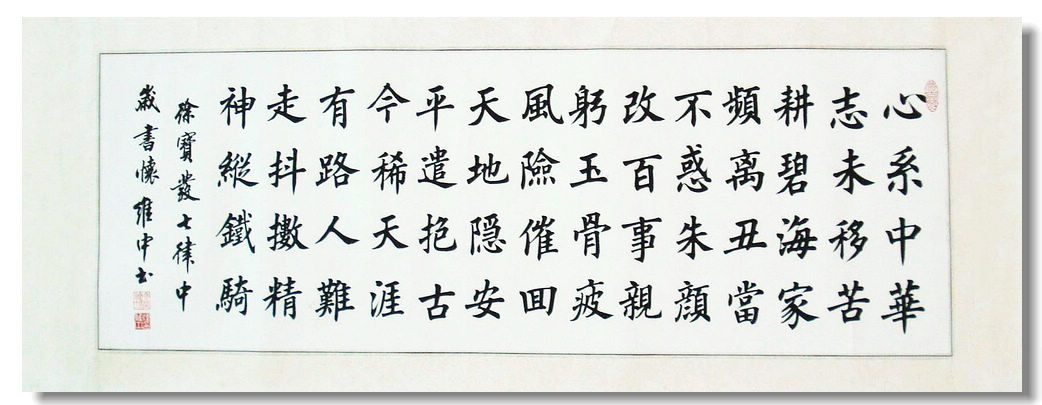 心系中華
志未移苦
耕碧海家
頻离丑當
不惑朱顔
改百事親
躬玉骨疲
風險催囬
天地隐安
平遣抱古
今稀天涯
有路人難
走抖擻精
神縱鐵騎
徐寶發七律中
歲書懷維中书